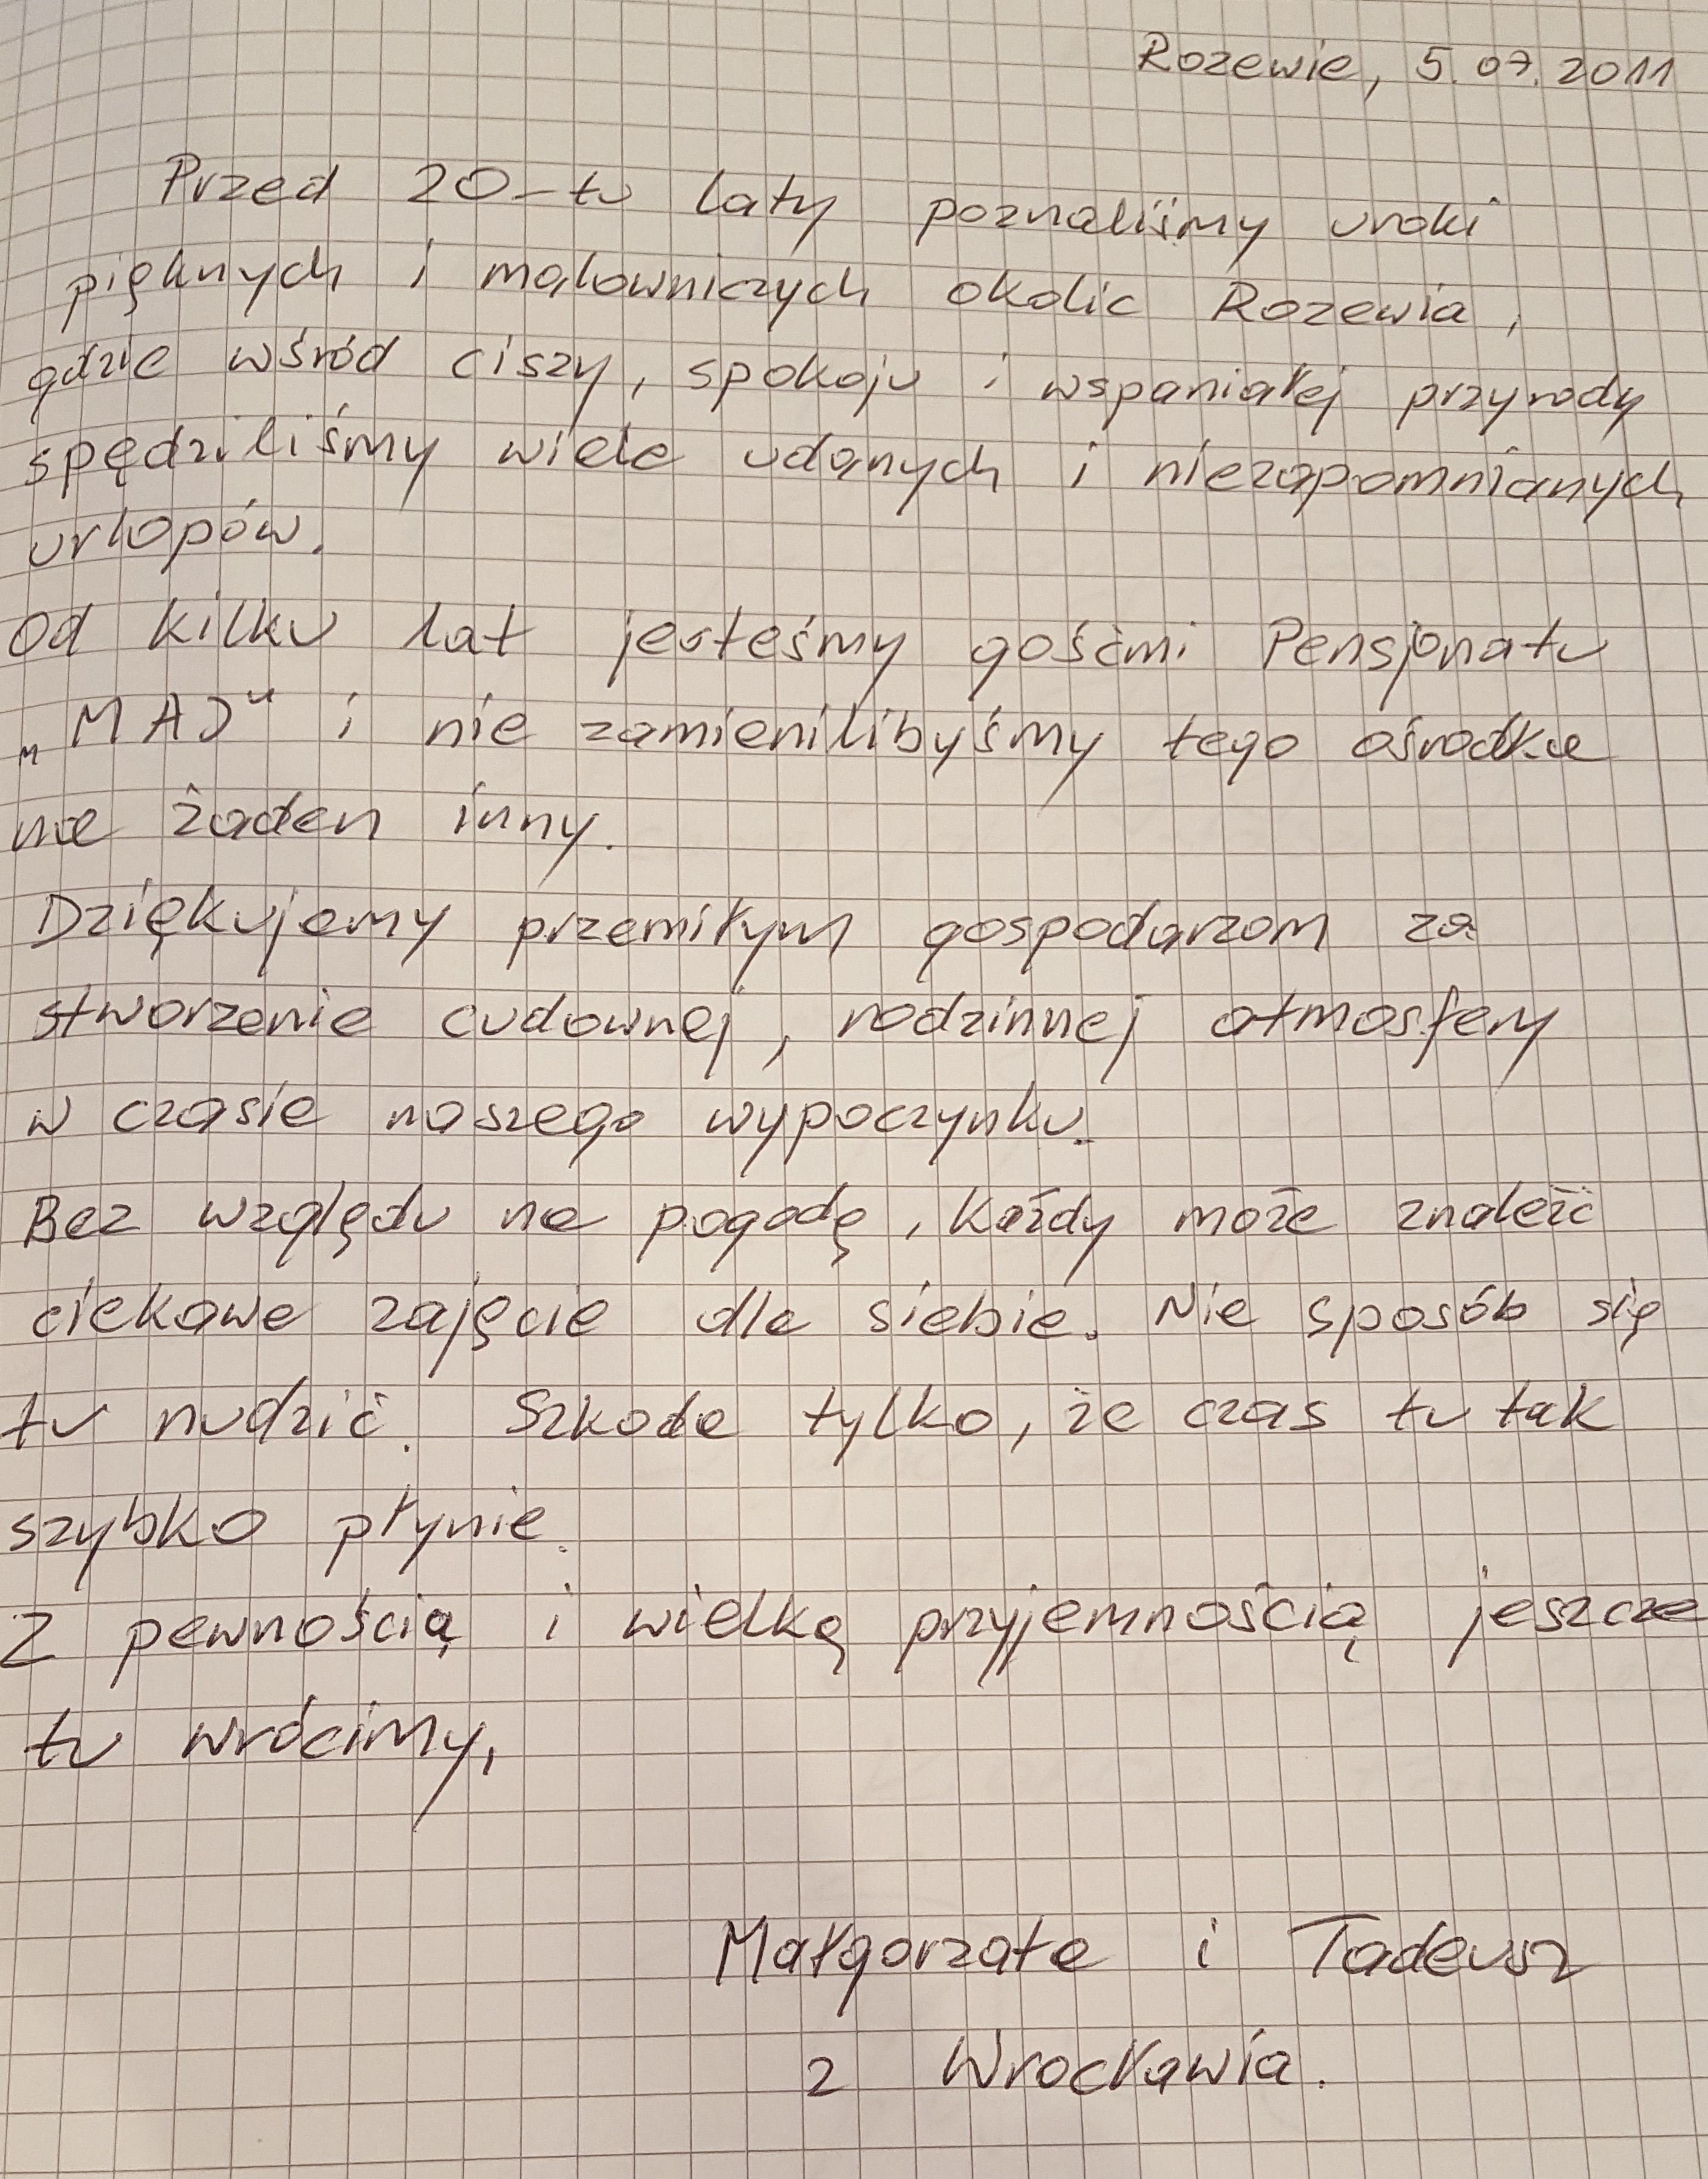 Rozewie, 5.07.2011
Przed 20-tu laty poznaliśmy uroki
pięknych i malowniczych okolic Rozewia,
gdzie wśród ciszy, spokoju i wspaniałej przyrody
spędziliśmy wiele udanych i niezapomnianych
urlopów.
Od kilku lat jesteśmy gośćmi Pensjonatu
„MAJ" i nie zamienilibyśmy tego ośrodka
na żaden inny.
Dziękujemy przemiłym gospodarzom za
stworzenie cudownej, rodzinnej atmosfery
w czasie naszego wypoczynku.
Bez względu na pogodę, każdy może znaleźć
ciekawe zajęcie dla siebie. Nie sposób się
tu nudzić. Szkoda tylko, że czas tu tak
szybko płynie.
Z pewnością i wielką przyjemnością jeszcze
tu wrócimy,
Małgorzata i Tadeusz
z Wrocławia.